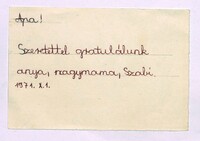 Apa!
Szeretettel gratulálunk
anya, nagymama, Szabi.
1971. X. 1.